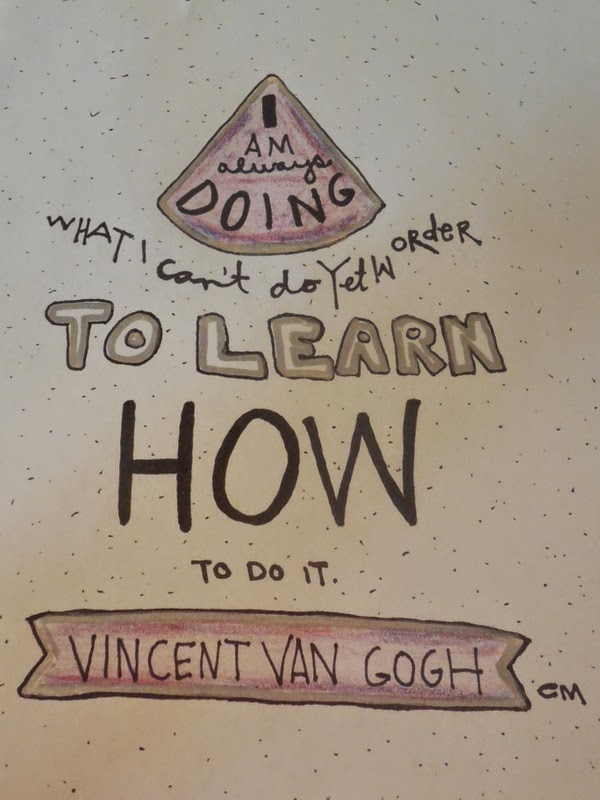 I
AM
always
DOING
WHAT I can't do Yet IN order
TO LEARN
HOW
TO DO IT.
VINCENT VAN GOGH
CM